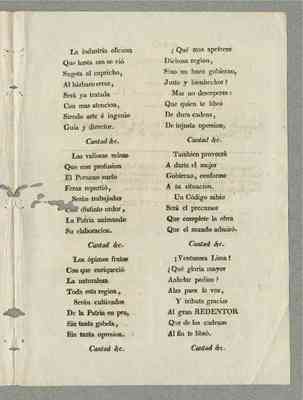 La industria oficiosa
Que hasta hoi se vió
Sugeta al capricho,
Al bárbaro error,
Será ya tratada
Con mas atencion,
Siendo arte é ingenio
Guia y director.
Cantad &c.
Las valiosas minas
Que con profusion
El Peruano suelo
Feraz repartió,
Serán trabajadas
Con distinto ardor,
La Patria animando
Su elaboracion.
Cantad &c.
Los ópimos frutos
Con que enriqueció
La naturaleza
Toda esta region,
Serán cultivados
De la Patria en pro,
Sin tanta gabela,
Sin tanta opresion.
Cantad &c.
¿Qué mas apeteces
Dichosa region,
Sino un buen gobierno,
Justo y bienhechor?
Mas no desesperes:
Que quien te libró
De dura cadena,
De injusta opresion,
Cantad &c.
Tambien proveerá
A darte el mejor
Gobierno, conforme
A tu situacion.
Un Código sabio
Será el precursor
Que complete la obra
Que el mundo admiró.
Cantad &c.
¡Venturosa Lima!
¿Qué gloria mayor
Anhelar podias?
Alza pues la voz,
Y tributa gracias
Al gran REDENTOR
Que de las cadenas
Al fin te libró.
Cantad &c.